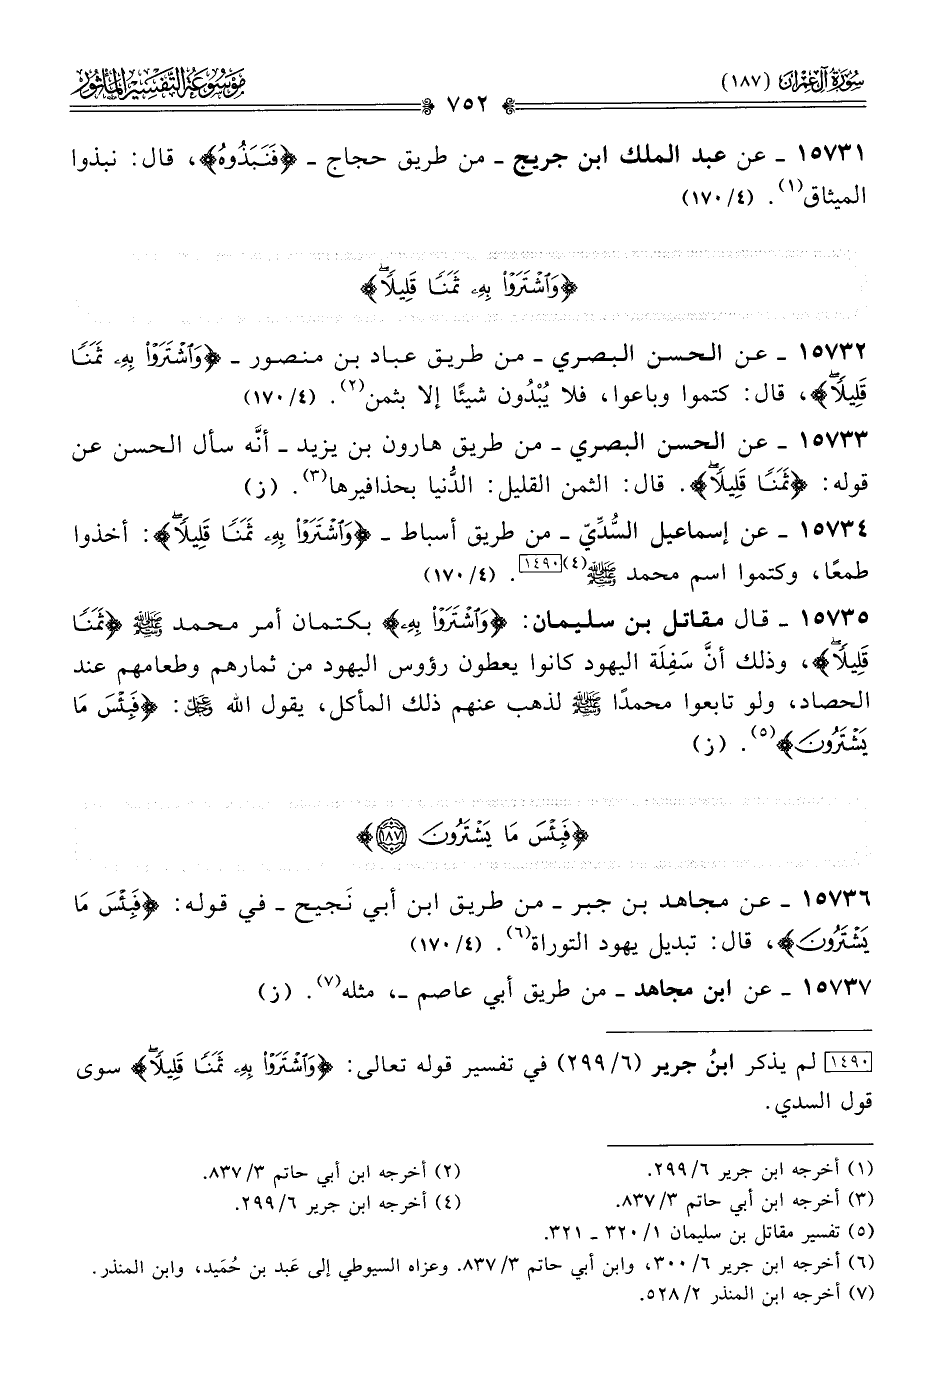 سُورَةُ آلِ عِمْرَانَ (١٨٧)
٧٥٢
مَوْسُوعَةُ التَّفْسِيرِ الْمَأْثُورِ
١٥٧٣١ ـ عن عبد الملك ابن جريج ـ من طريق حجاج ـ ﴿فَنَبَذُوهُ﴾، قال: نبذوا
الميثاق(١). (١٧٠/٤)
﴿وَٱشْتَرَوْا۟ بِهِۦ ثَمَنًا قَلِيلًاۖ﴾
١٥٧٣٢ ـ عن الحسن البصري ـ من طريق عباد بن منصور ـ ﴿وَٱشْتَرَوْا۟ بِهِۦ ثَمَنًا
قَلِيلًاۖ﴾، قال: كتموا وباعوا، فلا يُبْدُون شيئًا إلا بثمن(٢). (١٧٠/٤)
١٥٧٣٣ ـ عن الحسن البصري ـ من طريق هارون بن يزيد ـ أنَّه سأل الحسن عن
قوله: ﴿ثَمَنًا قَلِيلًاۖ﴾. قال: الثمن القليل: الدُّنيا بحذافيرها(٣). (ز)
١٥٧٣٤ ـ عن إسماعيل السُّدِّيّ ـ من طريق أسباط ـ ﴿وَٱشْتَرَوْا۟ بِهِۦ ثَمَنًا قَلِيلًاۖ﴾: أخذوا
طمعًا، وكتموا اسم محمد ﷺ(٤)[١٤٩٠]. (١٧٠/٤)
١٥٧٣٥ ـ قال مقاتل بن سليمان: ﴿وَٱشْتَرَوْا۟ بِهِۦ﴾ بكتمان أمر محمد ﷺ ﴿ثَمَنًا
قَلِيلًاۖ﴾، وذلك أنَّ سَفِلَة اليهود كانوا يعطون رؤوس اليهود من ثمارهم وطعامهم عند
الحصاد، ولو تابعوا محمدًا ﷺ لذهب عنهم ذلك المأكل، يقول الله ﷿: ﴿فَبِئْسَ مَا
يَشْتَرُونَ﴾(٥). (ز)
﴿فَبِئْسَ مَا يَشْتَرُونَ ١٨٧﴾
١٥٧٣٦ ـ عن مجاهد بن جبر ـ من طريق ابن أبي نَجيح ـ في قوله: ﴿فَبِئْسَ مَا
يَشْتَرُونَ﴾، قال: تبديل يهود التوراة(٦). (١٧٠/٤)
١٥٧٣٧ ـ عن ابن مجاهد ـ من طريق أبي عاصم ـ، مثله(٧). (ز)
[١٤٩٠] لم يذكر ابنُ جرير (٢٩٩/٦) في تفسير قوله تعالى: ﴿وَٱشْتَرَوْا۟ بِهِۦ ثَمَنًا قَلِيلًاۖ﴾ سوى
قول السدي.
(١) أخرجه ابن جرير ٢٩٩/٦. (٢) أخرجه ابن أبي حاتم ٨٣٧/٣.
(٣) أخرجه ابن أبي حاتم ٨٣٧/٣. (٤) أخرجه ابن جرير ٢٩٩/٦.
(٥) تفسير مقاتل بن سليمان ٣٢٠/١ ـ ٣٢١.
(٦) أخرجه ابن جرير ٣٠٠/٦، وابن أبي حاتم ٨٣٧/٣. وعزاه السيوطي إلى عَبد بن حُمَيد، وابن المنذر.
(٧) أخرجه ابن المنذر ٥٢٨/٢.